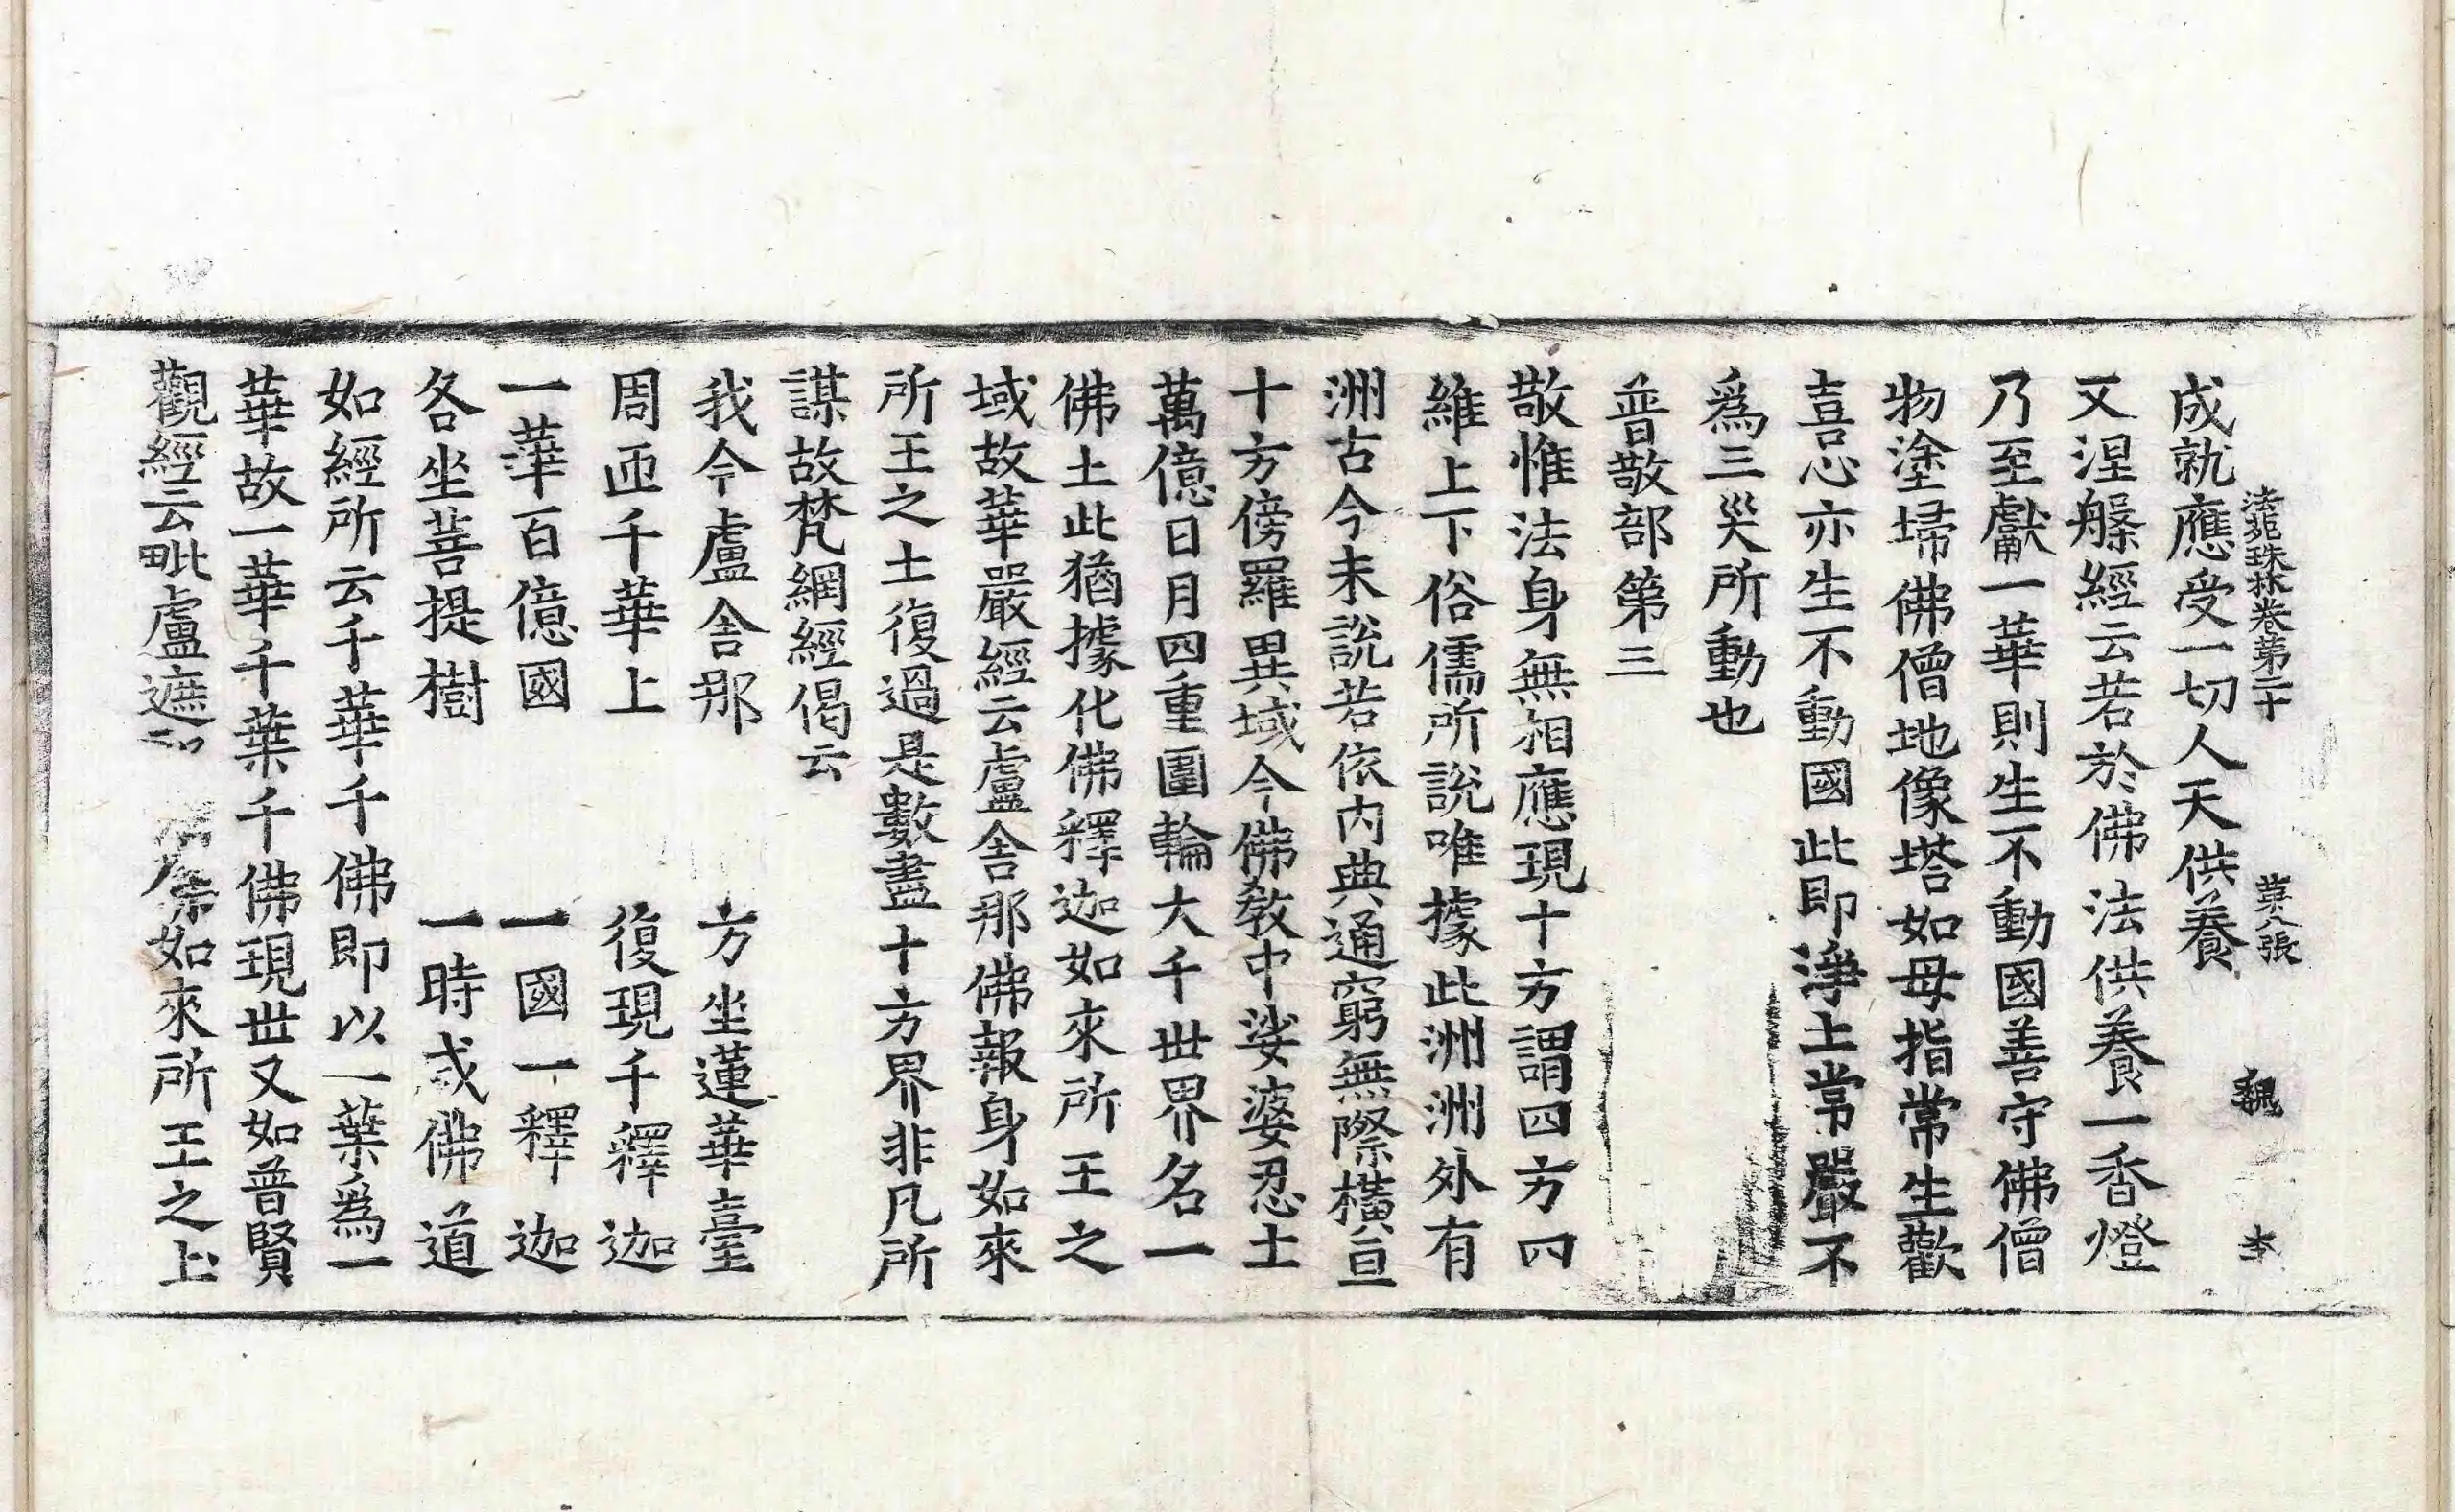 法苑珠林卷第二十 第八張 魏 李
成就應受一切人天供養
又涅槃經云若於佛法供養一香燈
乃至獻一華則生不動國善守佛僧
物塗埽佛僧地像塔如母指常生歡
喜心亦生不動國此即淨土常嚴不
爲三災所動也
普敬部第三
敬惟法身無相應現十方謂四方四
維上下俗儒所說唯據此洲洲外有
洲古今未說若依內典通窮無際橫亘
十方傍羅異域今佛教中娑婆忍土
萬億日月四重圍輪大千世界名一
佛土此猶據化佛釋迦如來所王之
域故華嚴經云盧舍那佛報身如來
所王之土復過是數盡十方界非凡所
謀故梵網經偈云
我今盧舍那 方坐蓮華臺
周帀千華上 復現千釋迦
一華百億國 一國一釋迦
各坐菩提樹 一時成佛道
如經所云千華千佛即以一葉爲一
華故一華千葉千佛現世又如普賢
觀經云毗盧遮 如來所王之土